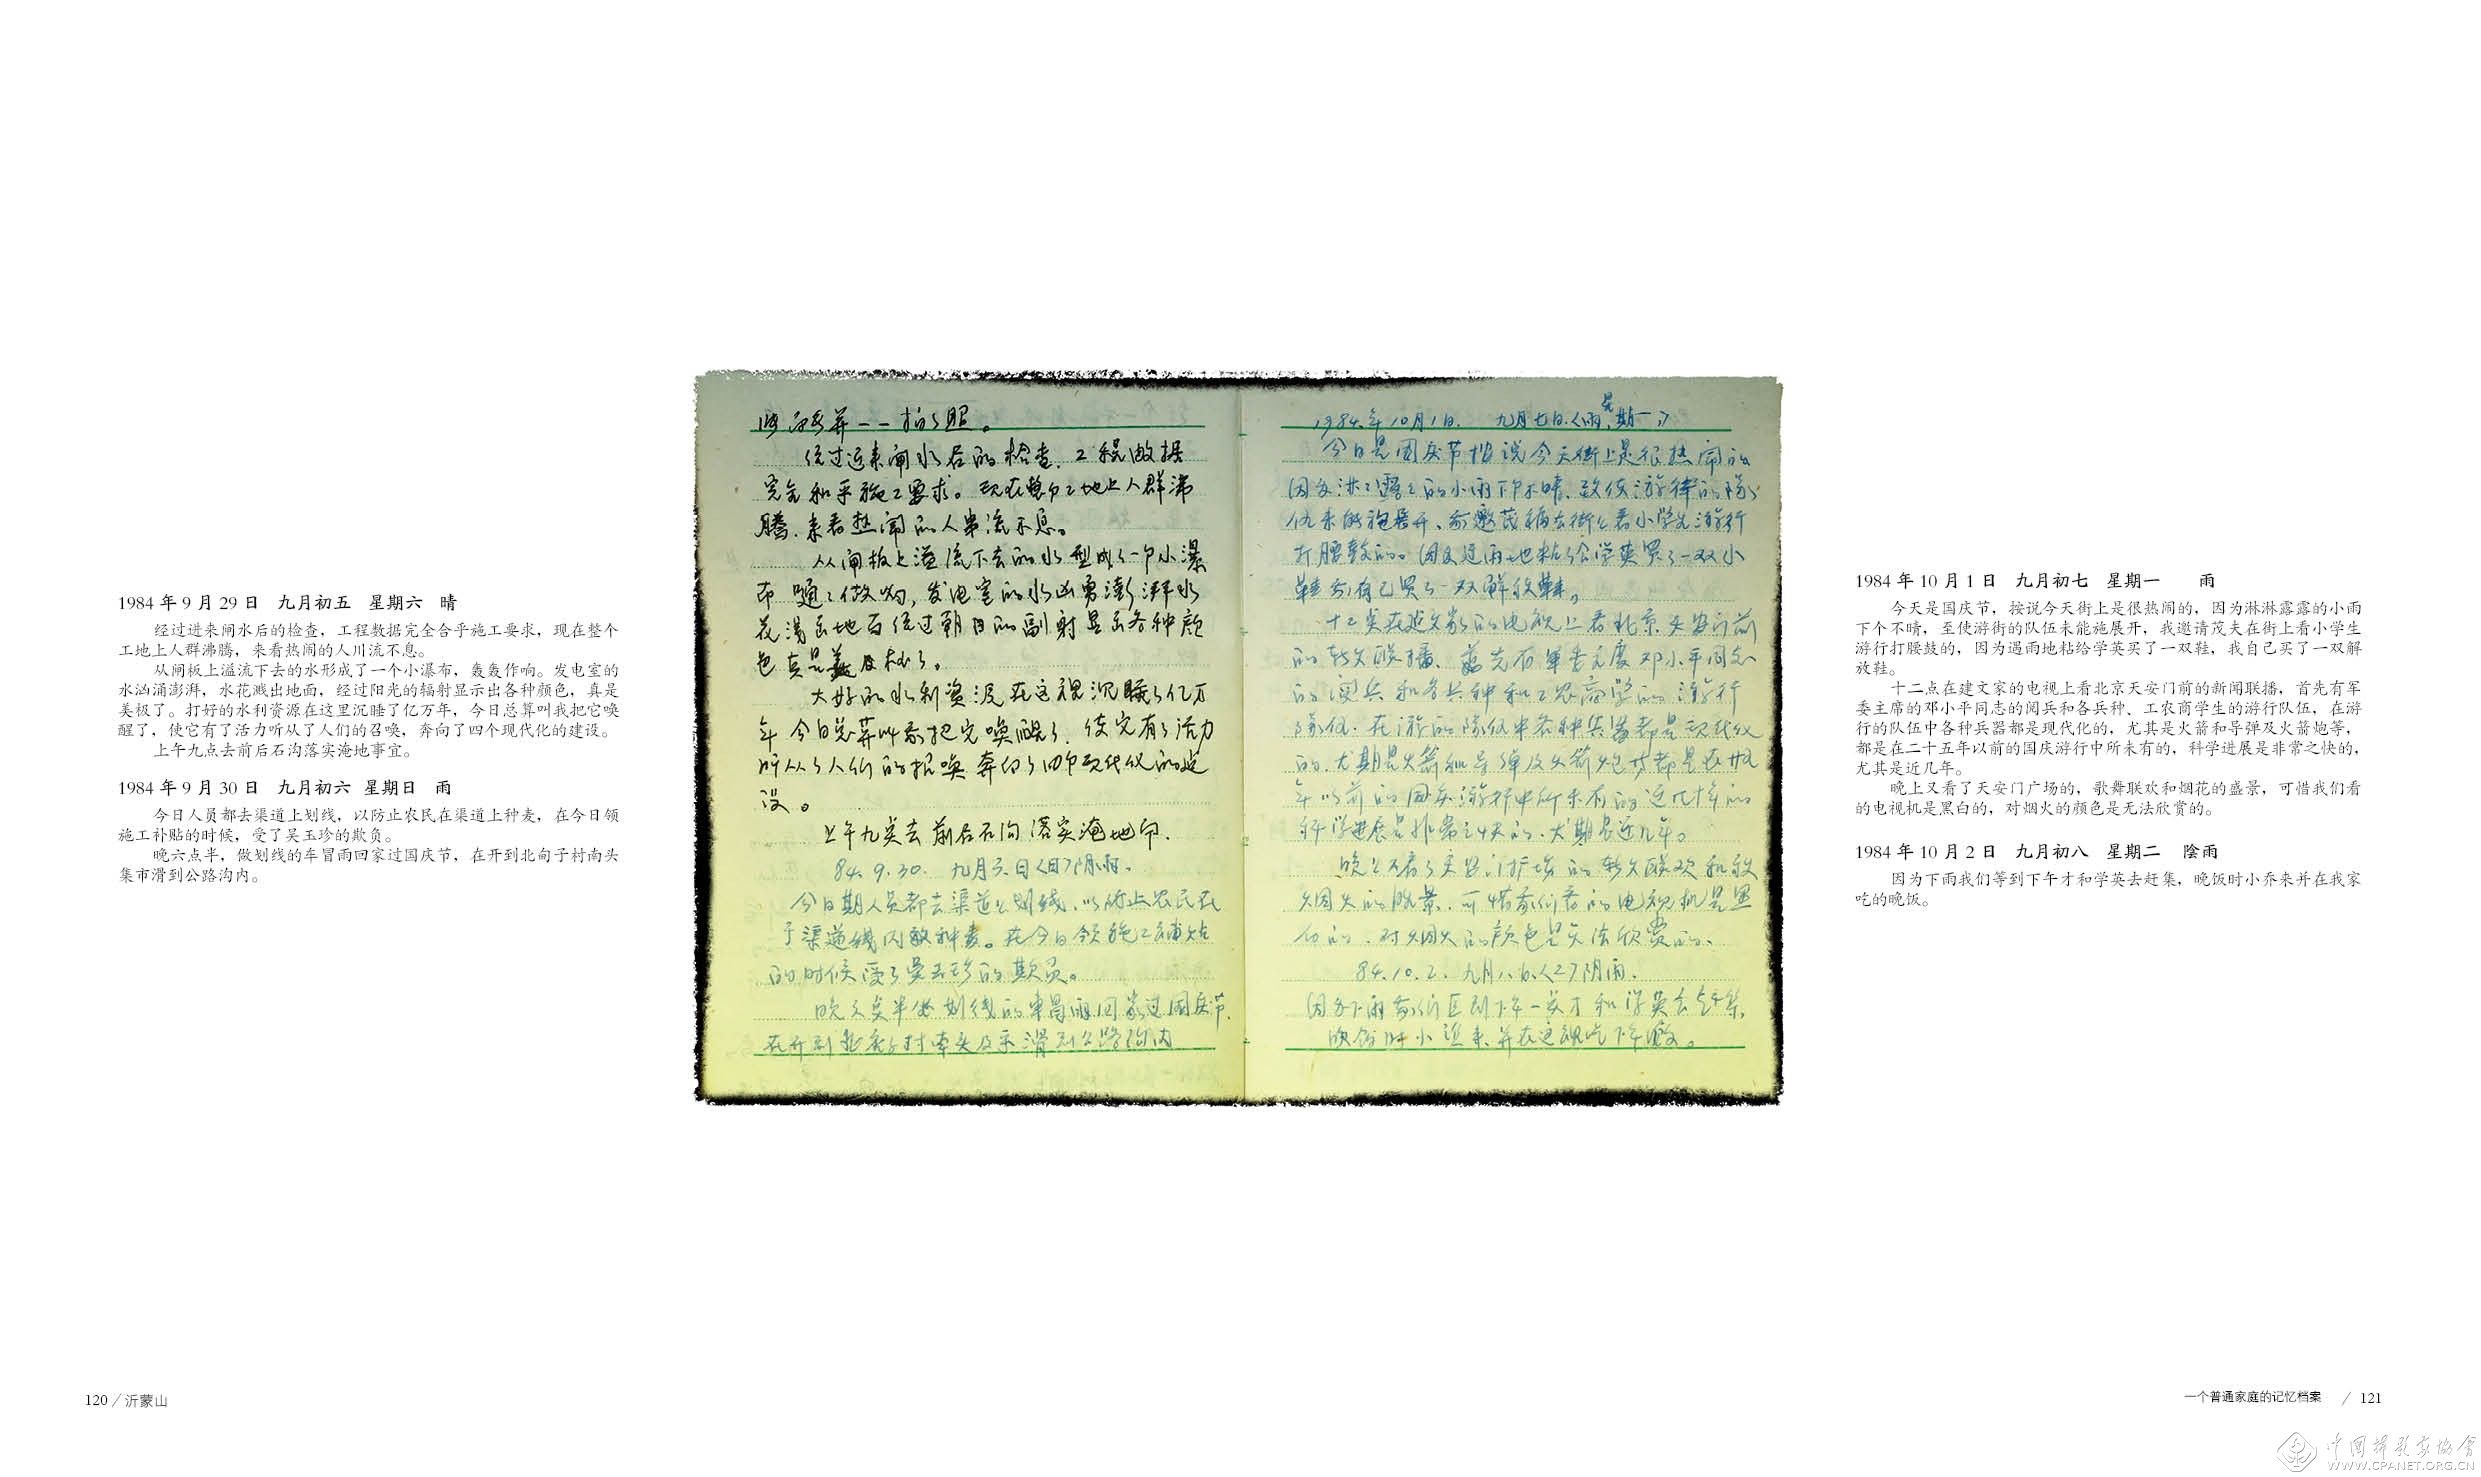 1984 年 9 月 29 日 九月初五 星期六 晴
经过进来闸水后的检查，工程数据完全合乎施工要求，现在整个
工地上人群沸腾，来看热闹的人川流不息。
从闸板上溢流下去的水形成了一个小瀑布，轰轰作响。发电室的
水汹涌澎湃，水花溅出地面，经过阳光的辐射显示出各种颜色，真是
美极了。打好的水利资源在这里沉睡了亿万年，今日总算叫我把它唤
醒了，使它有了活力听从了人们的召唤，奔向了四个现代化的建设。
上午九点去前后石沟落实淹地事宜。
1984 年 9 月 30 日 九月初六 星期日 雨
今日人员都去渠道上划线，以防止农民在渠道上种麦，在今日领
施工补贴的时候，受了吴玉珍的欺负。
晚六点半，做划线的车冒雨回家过国庆节，在开到北甸子村南头
集市滑到公路沟内。
一一拍了照。
经过近来闸水后的检查.工程数据
完全和乎施工要求。现在整个工地上人群沸
腾.来看热闹的人串流不息。
从闸板上溢流下去的水型成了一个小瀑
布
发电室的水凶勇澎湃水
花溅出地面经过朝日的副射显出各种颜
色真是美及极了。
大好的水利资源在这裡沉睡了亿万
年今日总算叫我把它唤醒了.使它有了活力
听从了人们的招唤奔向了四个现代化的建
设。
上午九点去前后石沟落实淹地
84.9.30. 九月六日〈日〉阴雨.
今日期人员都去渠道上划线.以防止农民在
于渠道线内种麦。在今日领施工补贴
的时候受了吴玉珍的欺负。
晚六点半做划线的车冒雨回家过国庆节.
滑到公路沟内
1984.年10月1日. 九月七日.〈雨.星期一〉
今日是国庆节按说今天街上是很热闹的
因为淋淋露露的小雨下个不晴.致使游行的队
伍未能施展开、我邀茂夫去街上看小学生游行
打腰鼓的。因又遇雨地粘给学英买了一双小
鞋我自己买了一双解放鞋。
十二点在建文家的电视上看北京天安门前
的新闻联播、首先有军委主席邓小平同志
的阅兵和各兵种和工农商学的游行
队伍.在游的队伍中各种兵器都是现代化
的.尤期是火箭和导弹及火箭炮等都是在廿五
年以前的国庆游行中所未有的近几十年的
科学进展是非常之快的.尤期是近几年。
晚上又看了天安门广场的
烟火的盛景.可惜我们看的电视机是黑
白的.对烟火的颜色是无法欣赏的、
84.10.2. 九月八日.〈二〉阴雨.
因为下雨我们直到下午一点才和学英去赶集.
晚饭时小
1984 年 10 月 1 日 九月初七 星期一 雨
今天是国庆节，按说今天街上是很热闹的，因为淋淋露露的小雨
下个不晴，至使游街的队伍未能施展开，我邀请茂夫在街上看小学生
游行打腰鼓的，因为遇雨地粘给学英买了一双鞋，我自己买了一双解
放鞋。
十二点在建文家的电视上看北京天安门前的新闻联播，首先有军
委主席的邓小平同志的阅兵和各兵种、工农商学生的游行队伍，在游
行的队伍中各种兵器都是现代化的，尤其是火箭和导弹及火箭炮等，
都是在二十五年以前的国庆游行中所未有的，科学进展是非常之快的，
尤其是近几年。
晚上又看了天安门广场的，歌舞联欢和烟花的盛景，可惜我们看
的电视机是黑白的，对烟火的颜色是无法欣赏的。
1984 年 10 月 2 日 九月初八 星期二 陰雨
因为下雨我们等到下午才和学英去赶集，晚饭时小乔来并在我家
吃的晚饭。
120 / 沂蒙山
一个普通家庭的记忆档案 / 121
中国摄影家协会
WWW.CPANET.ORG.CN